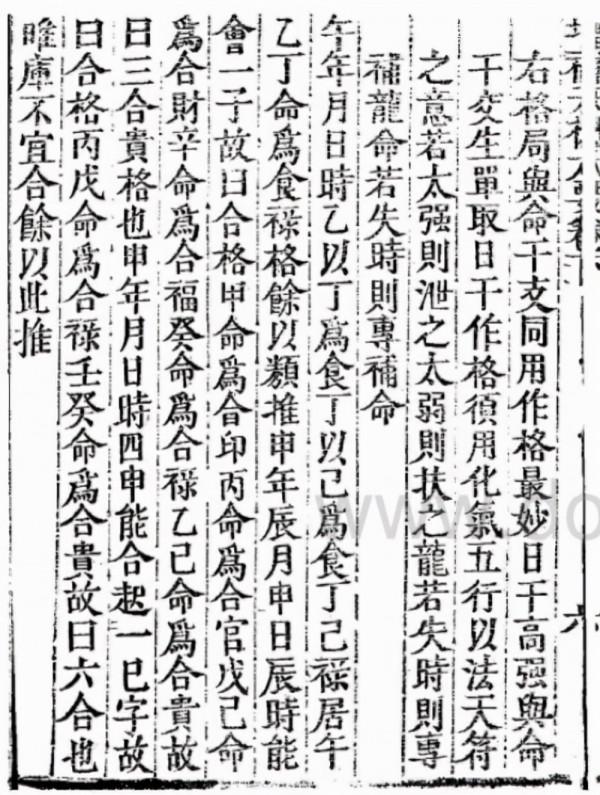 右格局與命干支同用作格最妙日干高强與命
干交生單取日干作格須用化氣五行以法天符
之意若太强則泄之太弱則扶之龍若失時則專
補龍命若失時則專補命
午年月日時乙以丁爲食丁以己爲食丁己祿居午
乙丁命爲食祿格餘以類推申年辰月申日辰時能
會一子故曰合格甲命爲合印丙命爲合官戊己命
爲合財辛命爲合福癸命爲合祿乙己命爲合貴故
曰三合貴格也申年月日時四申能合起一巳字故
曰合格丙戊命爲合祿壬癸命爲合貴故曰六合也
雎庫不宜合餘以此推
六
www.do